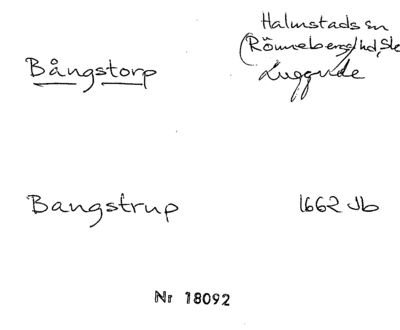 Halmstads sn
(Rönnebergs hd, Sk
Bångstorp Luggude
Bangstrup 1662 Jb
Nr 18092